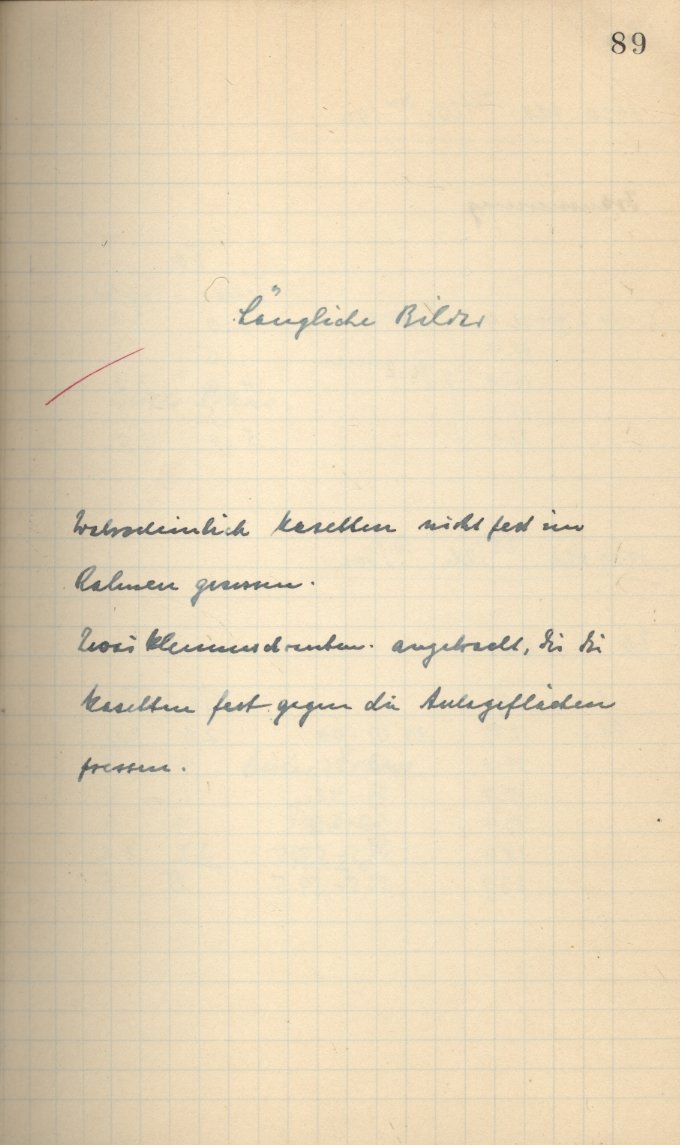 89
Längliche Bilder
Wahrscheinlich Kasetten nicht fest im
Rahmen gesessen.
Zwei Klemmschrauben angebracht, die die
Kasetten fest gegen die Anlageflächen
pressen.